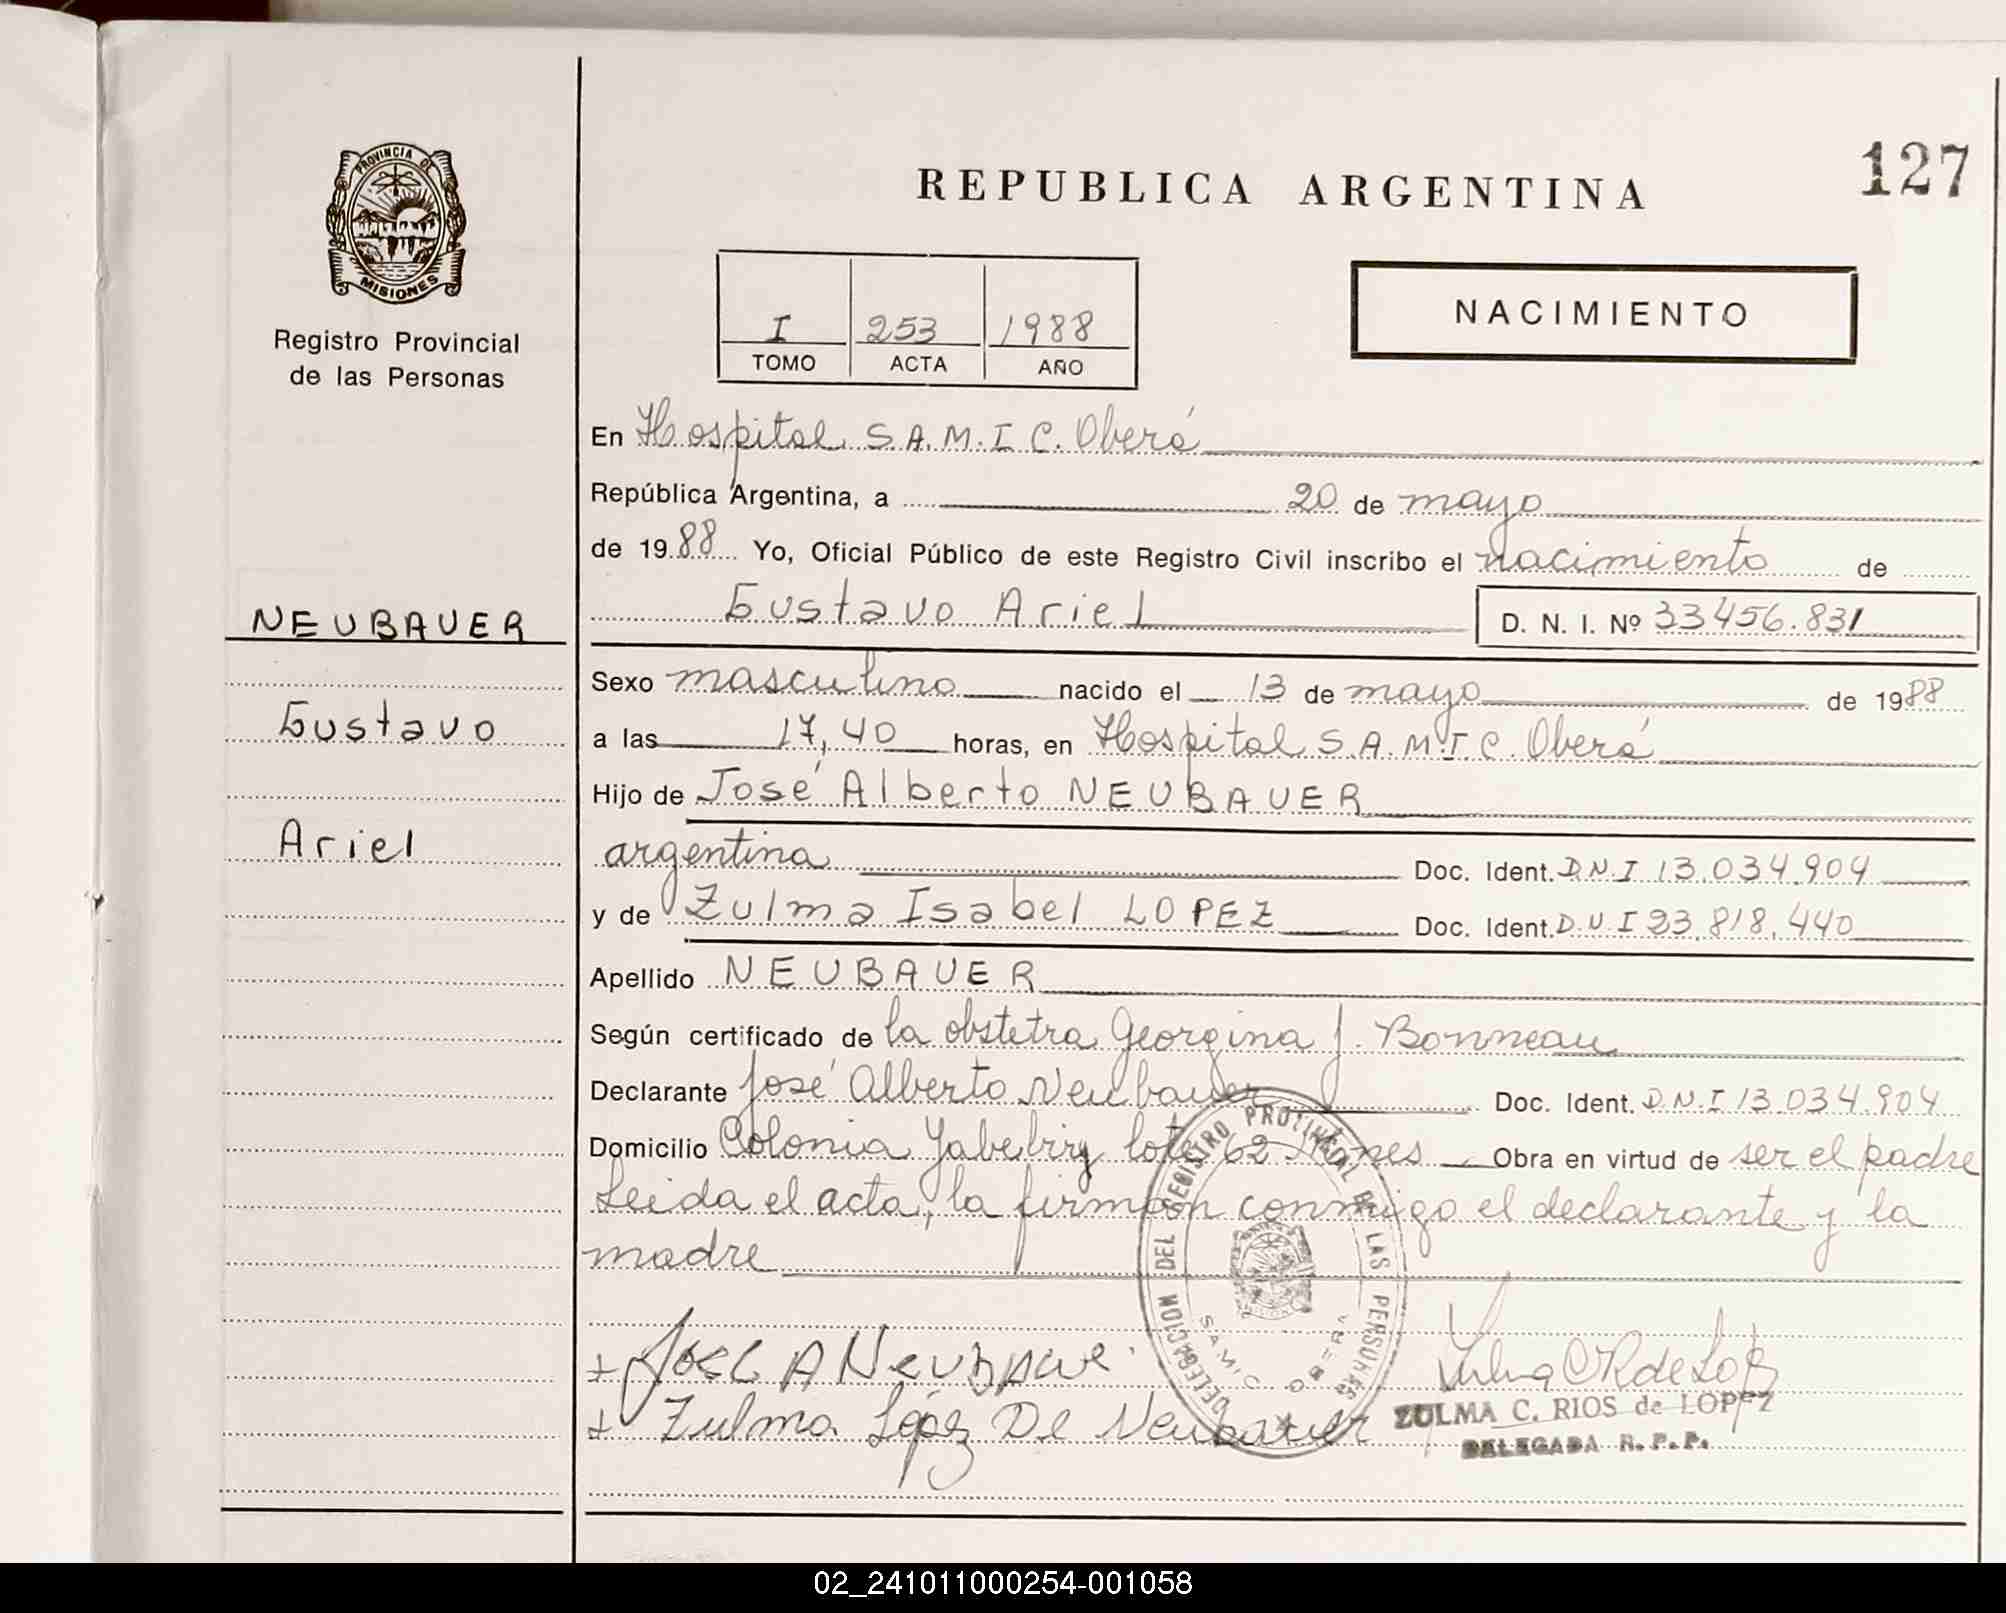 127
PROVINCIA DE
MISIONES
Registro Provincial
de las Personas
REPUBLICA ARGENTINA
I 253 1988
TOMO ACTA AÑO
NACIMIENTO
En Hospital S.A.M.I.C. Oberá
República Argentina, a 20 de mayo
de 1988 Yo, Oficial Público de este Registro Civil inscribo el nacimiento de
Gustavo Ariel D. N. I. Nº 33456.831
NEUBAUER
Gustavo
Ariel
Sexo masculino nacido el 13 de mayo de 1988
a las 17,40 horas, en Hospital S.A.M.I.C. Oberá
Hijo de José Alberto NEUBAUER
argentina Doc. Ident. D.N.I 13.034.904
y de Zulma Isabel LOPEZ Doc. Ident. D.N.I 23.818.440
Apellido NEUBAUER
Según certificado de la obstetra Georgina J. Bonneau
Declarante José Alberto Neubauer Doc. Ident. D.N.I 13.034.904
Domicilio Colonia Yabebiry lote 62 Mnes Obra en virtud de ser el padre
Leida el acta, la firman conmigo el declarante y la
madre
DELEGACION DEL REGISTRO PROVINCIAL DE LAS PERSONAS
SAMIC
+ José A Neubaue
+ Zulma López De Neubauer
ZULMA C. RIOS de LOPEZ
DELEGADA R.P.P.
02_241011000254-001058